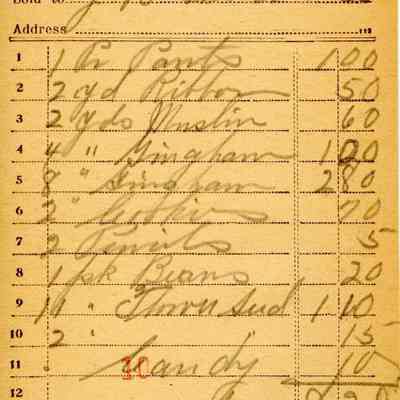 Sold to
Address
1 1 Pr Pants 1 00
2 2 yd Ribbon 50
3 2 yds Muslin 60
4 4 " Gingham 1 20
5 8 " Gingham 2 80
6 2 " Cookies 70
7 2 Pencils 5
8 1 pk Beans 20
9 11 " 1 10
10 2 " " 15
11 Candy 10
10
12